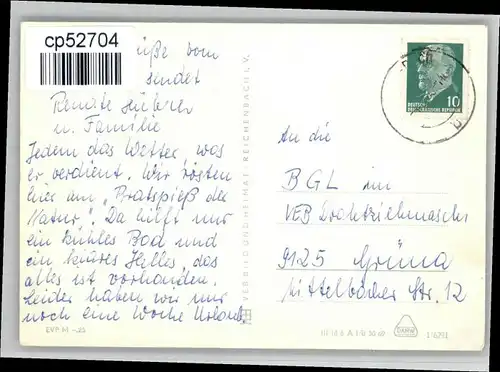 cp52704
üße vom
sendet
Renate Hübner
u. Familie
Jedem das Wetter was
er verdient. Wir rösten
hier am "Bratspieß der
Natur". Da hilft nur
ein kühles Bad und
ein kühles Helles, das
alles ist vorhanden.
Leider haben wir nur
noch eine Woche Urlaub.
EVP M -,25
VEB BILD UND HEIMAT REICHENBACH I. V.
10
DEUTSCHE
DEMOKRATISCHE REPUBLIK
An die
BGL im
VEB Drahtziehmasch
9125 Grüna
Mittelbacher Str. 12
III 18 6 A 1/B